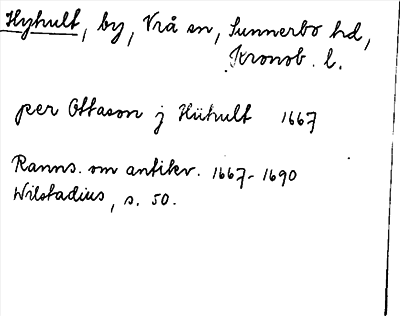 Hyhult, by, Vrå sn, Sunnerbo hd,
Kronob. l.
per Ottason j Hühult 1667
Ranns. om antikv. 1667-1690
Wilstadius, s. 50.